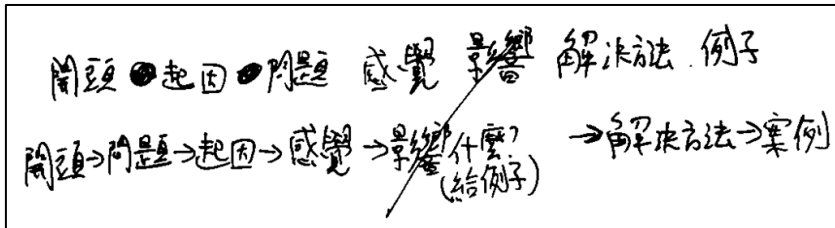 開頭 起因 問題 感覺 影響 解決方法.例子
開頭→問題→起因→感覺→影響什麼 →解決方法→案例
(給例子)